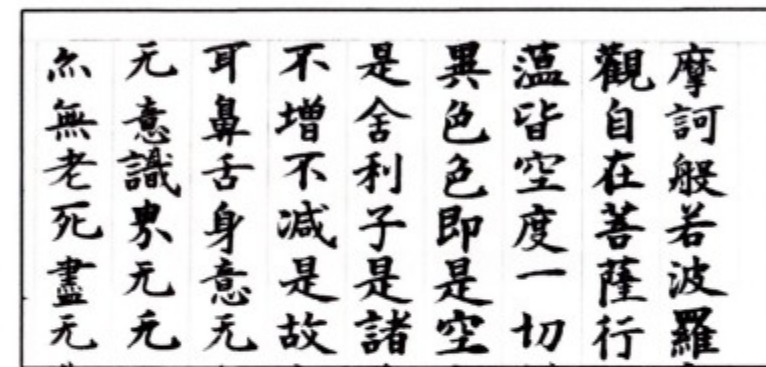 摩訶般若波羅
觀自在菩薩行
薀皆空度一切
異色色即是空
是舍利子是諸
不增不减是故
耳鼻舌身意无
无意識界无无
亦無老死盡无